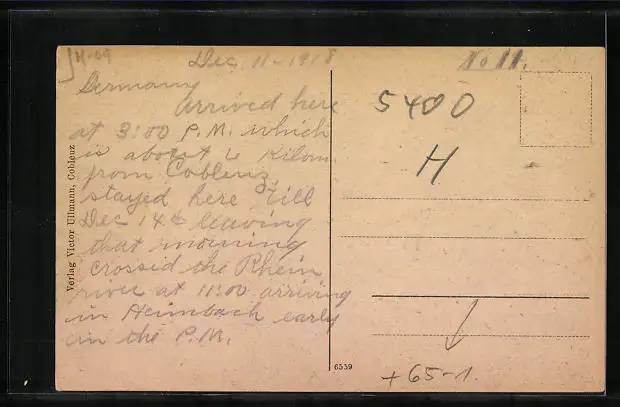 H-09
Dec 11-1918
No 11.
Germany
Arrived here
at 3:00 P.M. which
is about 6 Kilom.
from Coblenz,
stayed here till
Dec 14th leaving
that morning
crossid the Rhein
river at 11:00 arriving
in Heimbach early
in the P.M.
Verlag Victor Ullmann, Coblenz
5400
H
6539
+65-1.